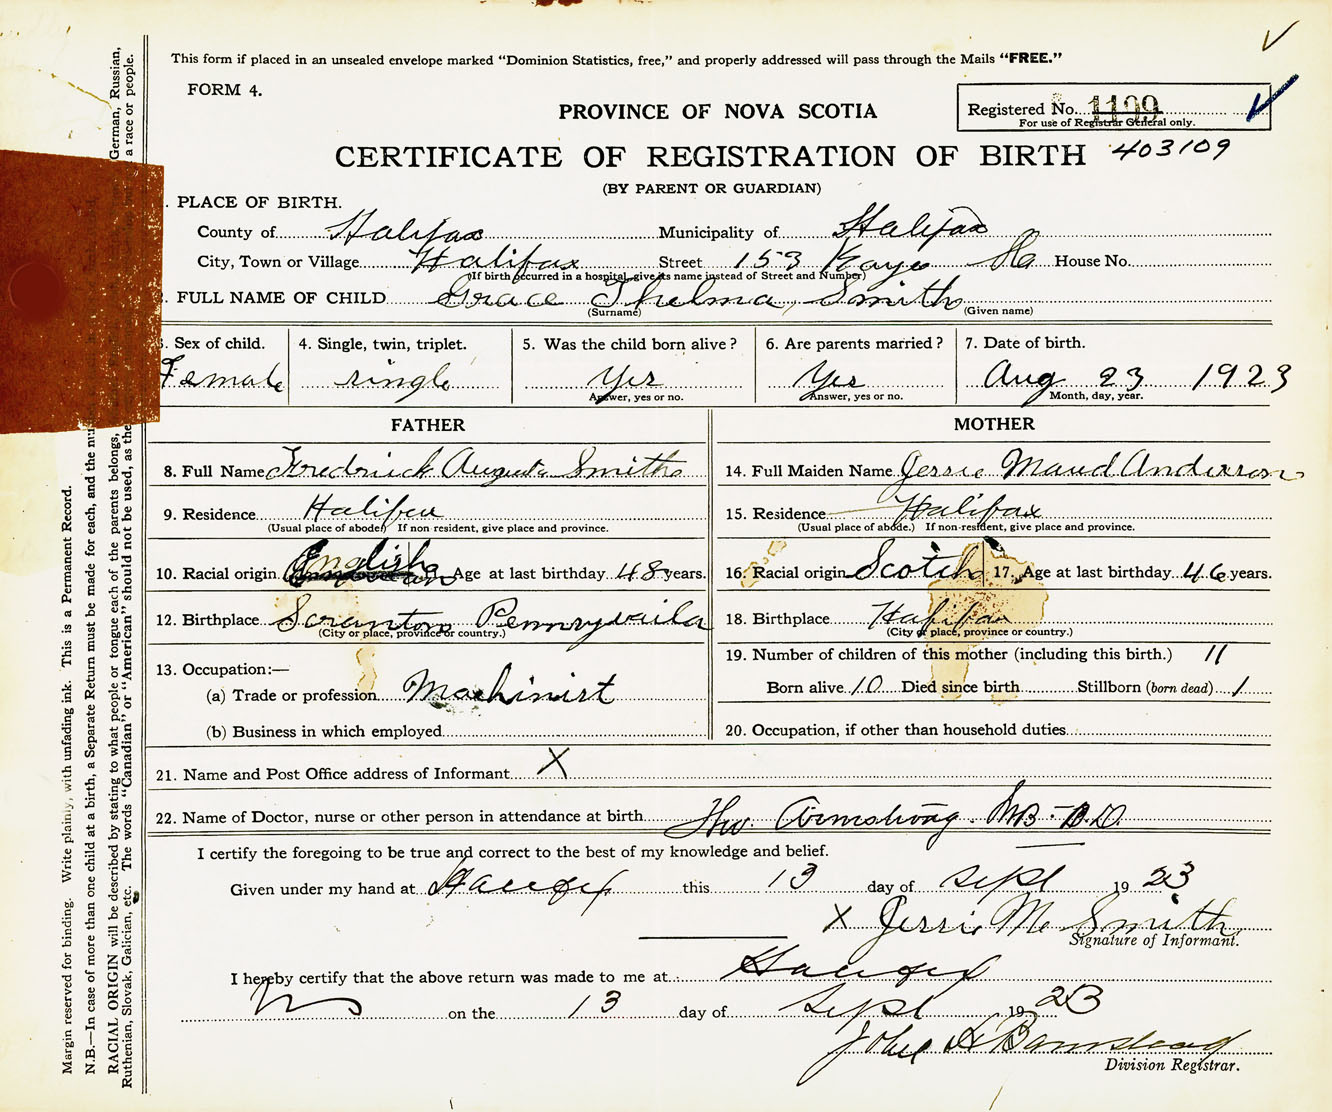 This form if placed in an unsealed envelope marked “Dominion Statistics, free,” and properly addressed will pass through the Mails “FREE.”
FORM 4.
Registered No. 1199
For use of Registrar General only.
PROVINCE OF NOVA SCOTIA
CERTIFICATE OF REGISTRATION OF BIRTH 403109
(BY PARENT OR GUARDIAN)
. PLACE OF BIRTH.
County of Halifax Municipality of Halifax
City, Town or Village Halifax Street 153 Kaye House No.
(If birth occurred in a hospital, give its name instead of Street and Number)
. FULL NAME OF CHILD Grace Thelma, Smith
(Surname) (Given name)
. Sex of child. 4. Single, twin, triplet. 5. Was the child born alive? 6. Are parents married? 7. Date of birth.
Female single Yes Yes Aug 23 1923
Answer, yes or no. Answer, yes or no. Month, day, year.
FATHER MOTHER
8. Full Name Fredrick Smith 14. Full Maiden Name Jessie Maud Anderson
9. Residence Halifax 15. Residence Halifax
(Usual place of abode.) If non resident, give place and province. (Usual place of abode.) If non-resident, give place and province.
10. Racial origin English Age at last birthday 48 years. 16. Racial origin Scotch 17. Age at last birthday 46 years.
12. Birthplace Scranton 18. Birthplace Halifax
(City or place, province or country.) (City or place, province or country.)
13. Occupation:— 19. Number of children of this mother (including this birth.) 11
(a) Trade or profession Machinist Born alive 10 Died since birth Stillborn (born dead) 1
(b) Business in which employed 20. Occupation, if other than household duties
21. Name and Post Office address of Informant X
22. Name of Doctor, nurse or other person in attendance at birth Armstrong.
I certify the foregoing to be true and correct to the best of my knowledge and belief.
Given under my hand at Halifax this 13 day of Sept 1923
X Jessie M. Smith
Signature of Informant.
I hereby certify that the above return was made to me at Halifax
on the 13 day of Sept 1923
John
Division Registrar.
Margin reserved for binding. Write plainly, with unfading ink. This is a Permanent Record.
N.B.—In case of more than one child at a birth, a Separate Return must be made for each, and the
RACIAL ORIGIN will be described by stating to what people or tongue each of the parents belongs, German, Russian,
Ruthenian, Slovak, Galician, etc. The words “Canadian” or “American” should not be used, as the a race or people.